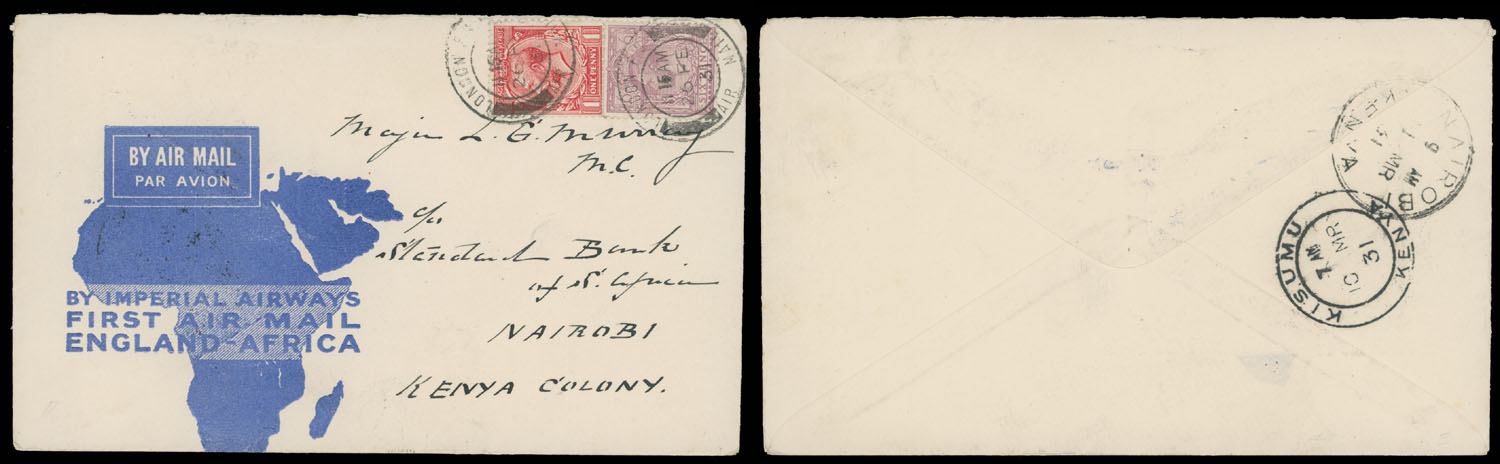 LONDON
11 15 AM
26 FE
AIR
ONE PENNY
LONDON
11 15 AM
26 FE
31
AIR MAIL
BY AIR MAIL
PAR AVION
BY IMPERIAL AIRWAYS
FIRST AIR MAIL
ENGLAND-AFRICA
Major L. G. Murray
M.C.
c/o
Standard Bank
of S. Africa
NAIROBI
KENYA COLONY.
NAIROBI
KENYA
9 AM
MR
31
KISUMU
7 AM
10 MR
31
KENYA